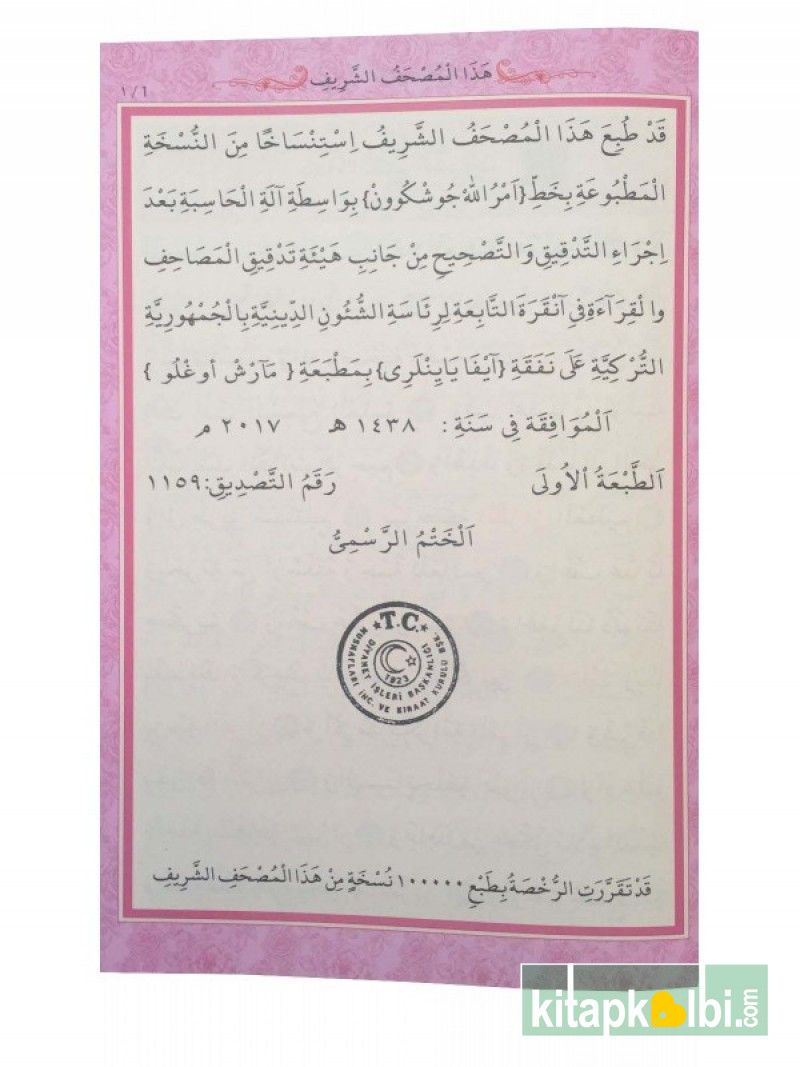 هَذَا الْمُصْحَفُ الشَّرِيفِ
١/٦
قَدْ طُبِعَ هَذَا الْمُصْحَفُ الشَّرِيفُ اِسْتِنْسَاخًا مِنَ النُّسْخَةِ
الْمَطْبُوعَةِ بِخَطِّ {اَمْرُ اللّٰه جُوشْكُوونْ} بِوَاسِطَةِ آلَةِ الْحَاسِبَةِ بَعْدَ
اِجْرَاءِ التَّدْقِيقِ وَالتَّصْحِيحِ مِنْ جَانِبِ هَيْئَةِ تَدْقِيقِ الْمَصَاحِفِ
وَالْقِرَآءَةِ فِي آنْقَرَةَ التَّابِعَةِ لِرِئَاسَةِ الشُّئُونِ الدِّينِيَّةِ بِالْجُمْهُورِيَّةِ
التُّرْكِيَّةِ عَلَى نَفَقَةِ {آيْفَا يَايِنْلَرِى} بِمَطْبَعَةِ { مَآرْشْ أوغْلُو }
اَلْمُوَافِقَة فِى سَنَةِ : ١٤٣٨ هـ ٢٠١٧ م
اَلطَّبْعَةُ الْاُولَى رَقَمُ التَّصْدِيقِ: ١١٥٩
اَلْخَتْمُ الرَّسْمِىُّ
★T.C.★
MUSHAFLARI İNC. VE KIRAAT KURULU BŞK.
DİYANET İŞLERİ BAŞKANLIĞI
1923
قَدْ تَقَرَّرَتِ الرُّخْصَةُ بِطَبْعِ ١٠٠٠٠٠ نُسْخَةٍ مِنْ هَذَا الْمُصْحَفِ الشَّرِيفِ
kitapkalbi.com